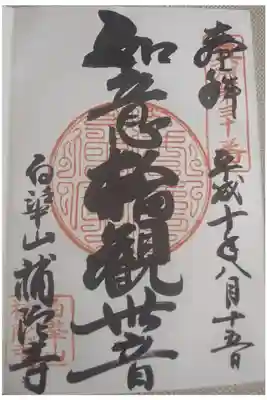 奉拝
平成十年八月十五日
如意輪観世音
白華山補陀寺